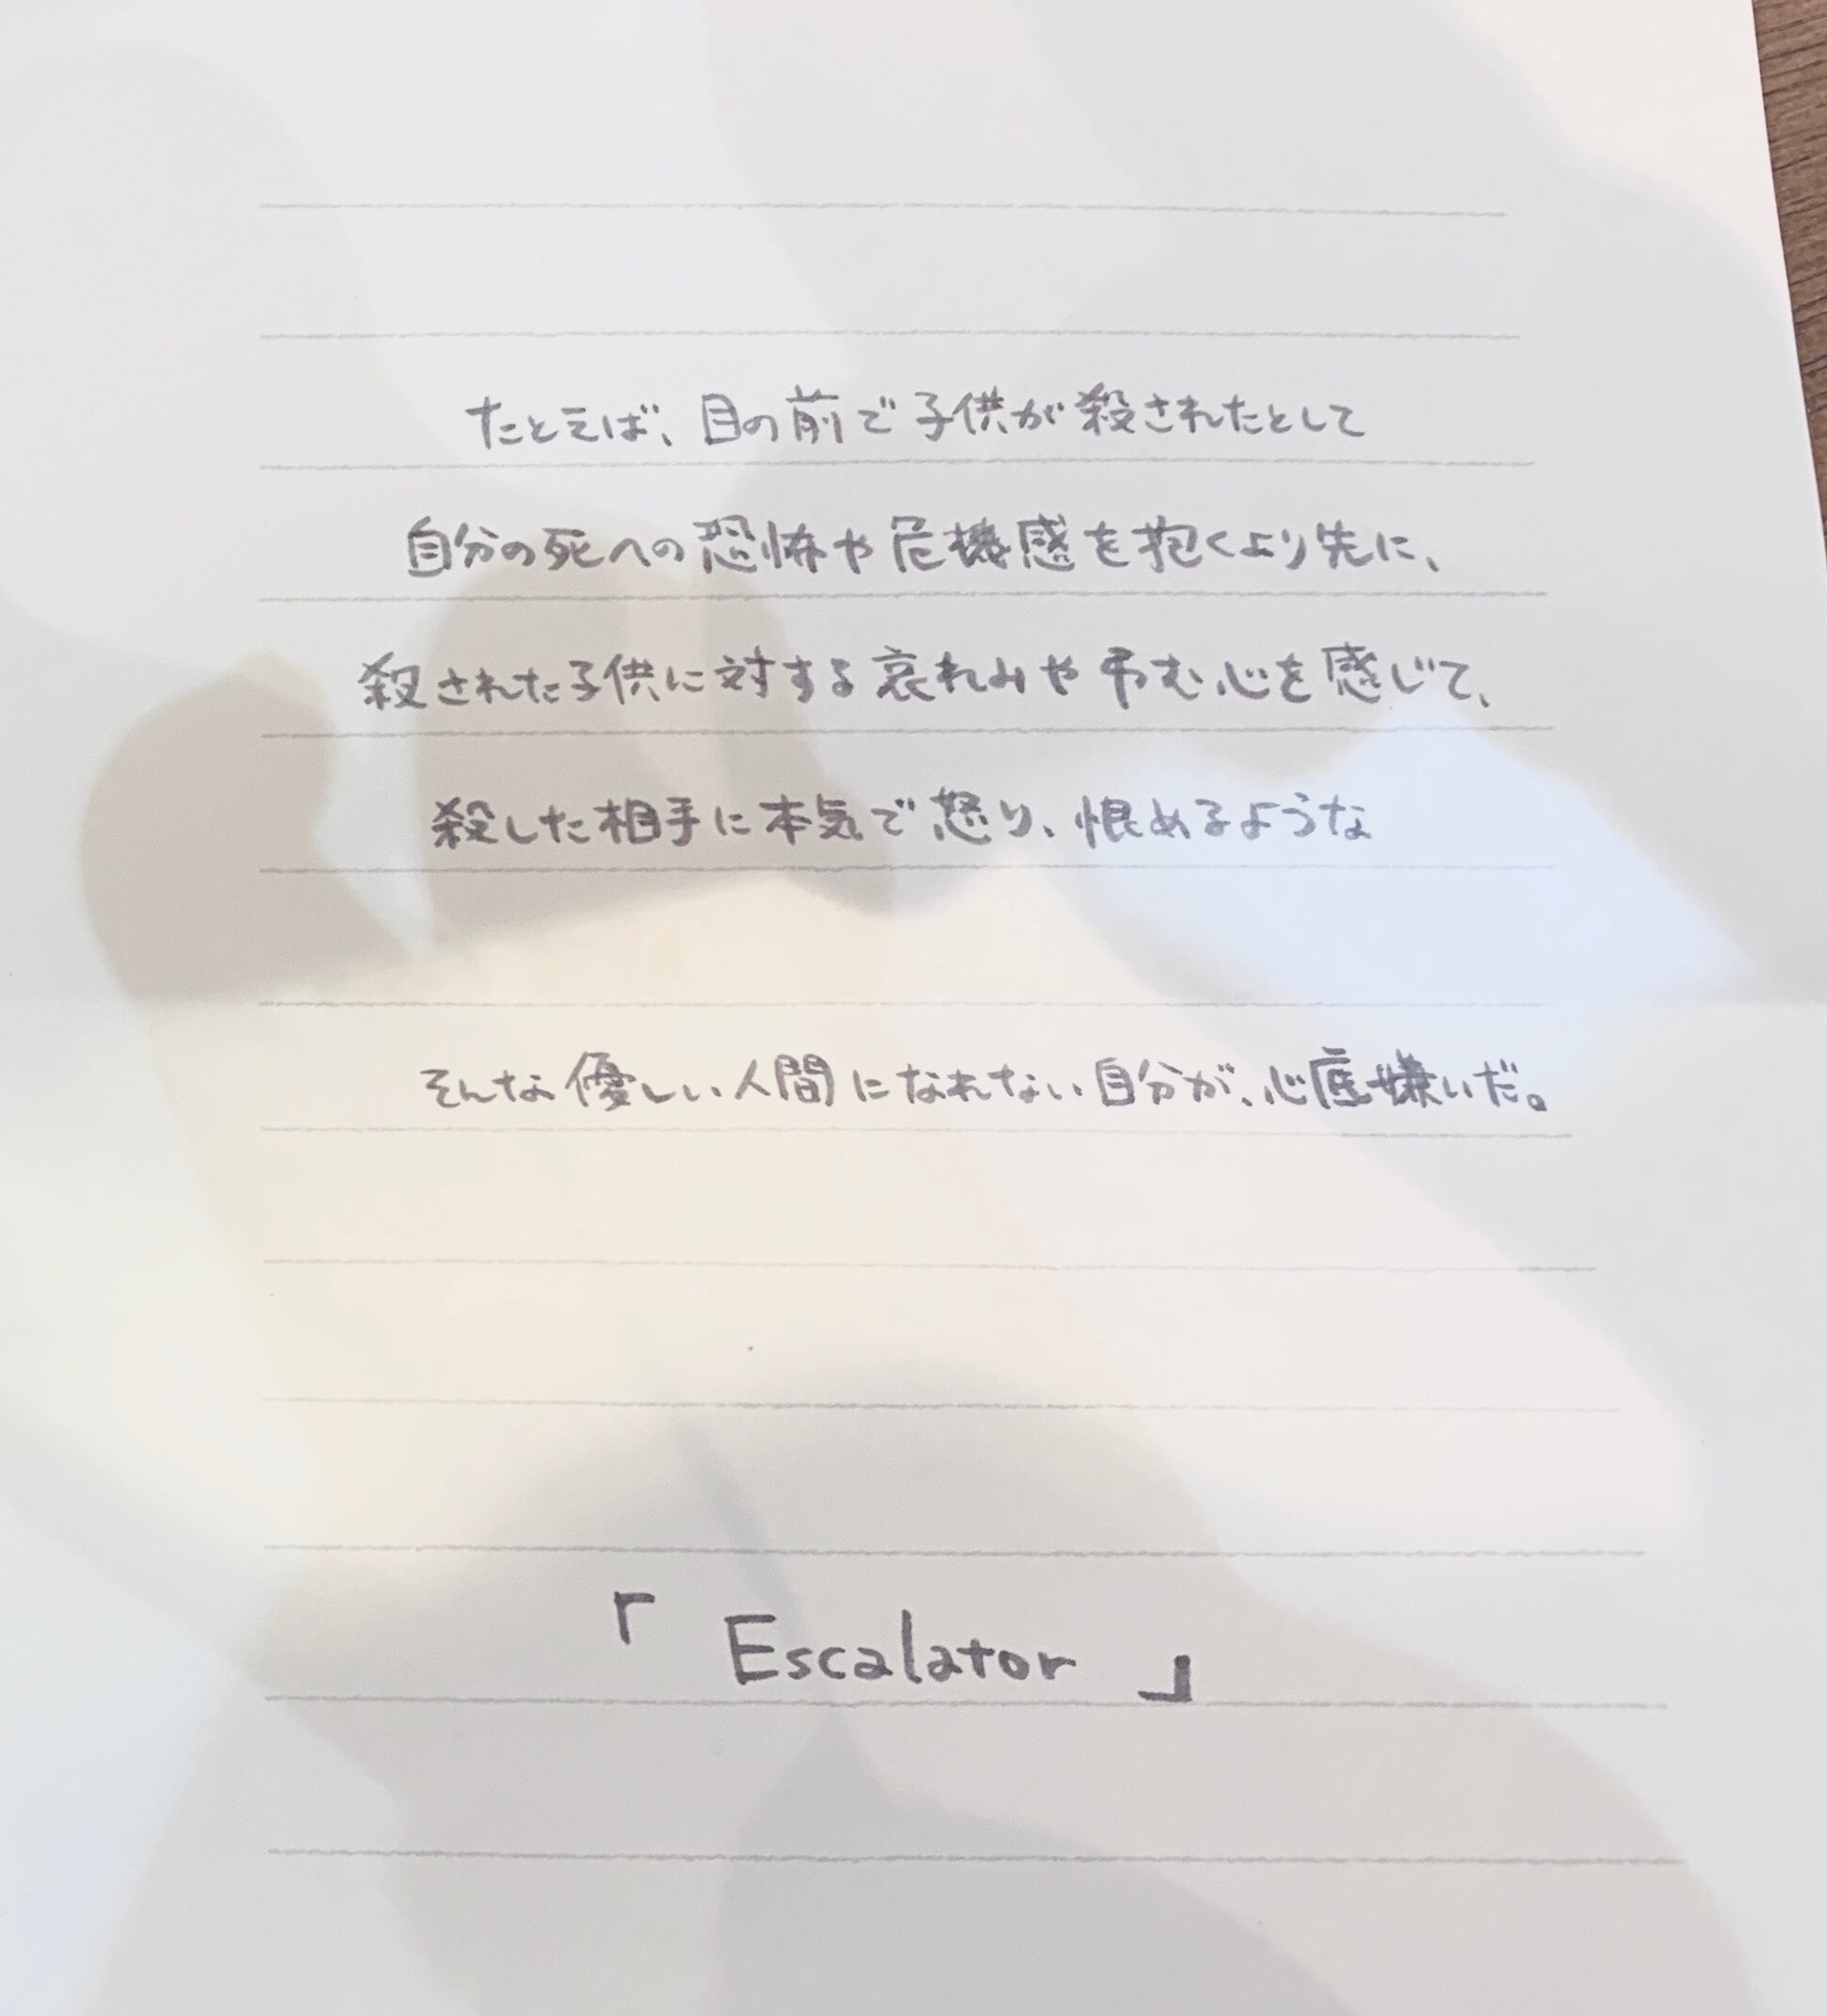 たとえば、目の前で子供が殺されたとして
自分の死への恐怖や危機感を抱くより先に、
殺された子供に対する哀れみや弔む心を感じて、
殺した相手に本気で怒り、恨めるような
そんな優しい人間になれない自分が、心底嫌いだ。
「Escalator」